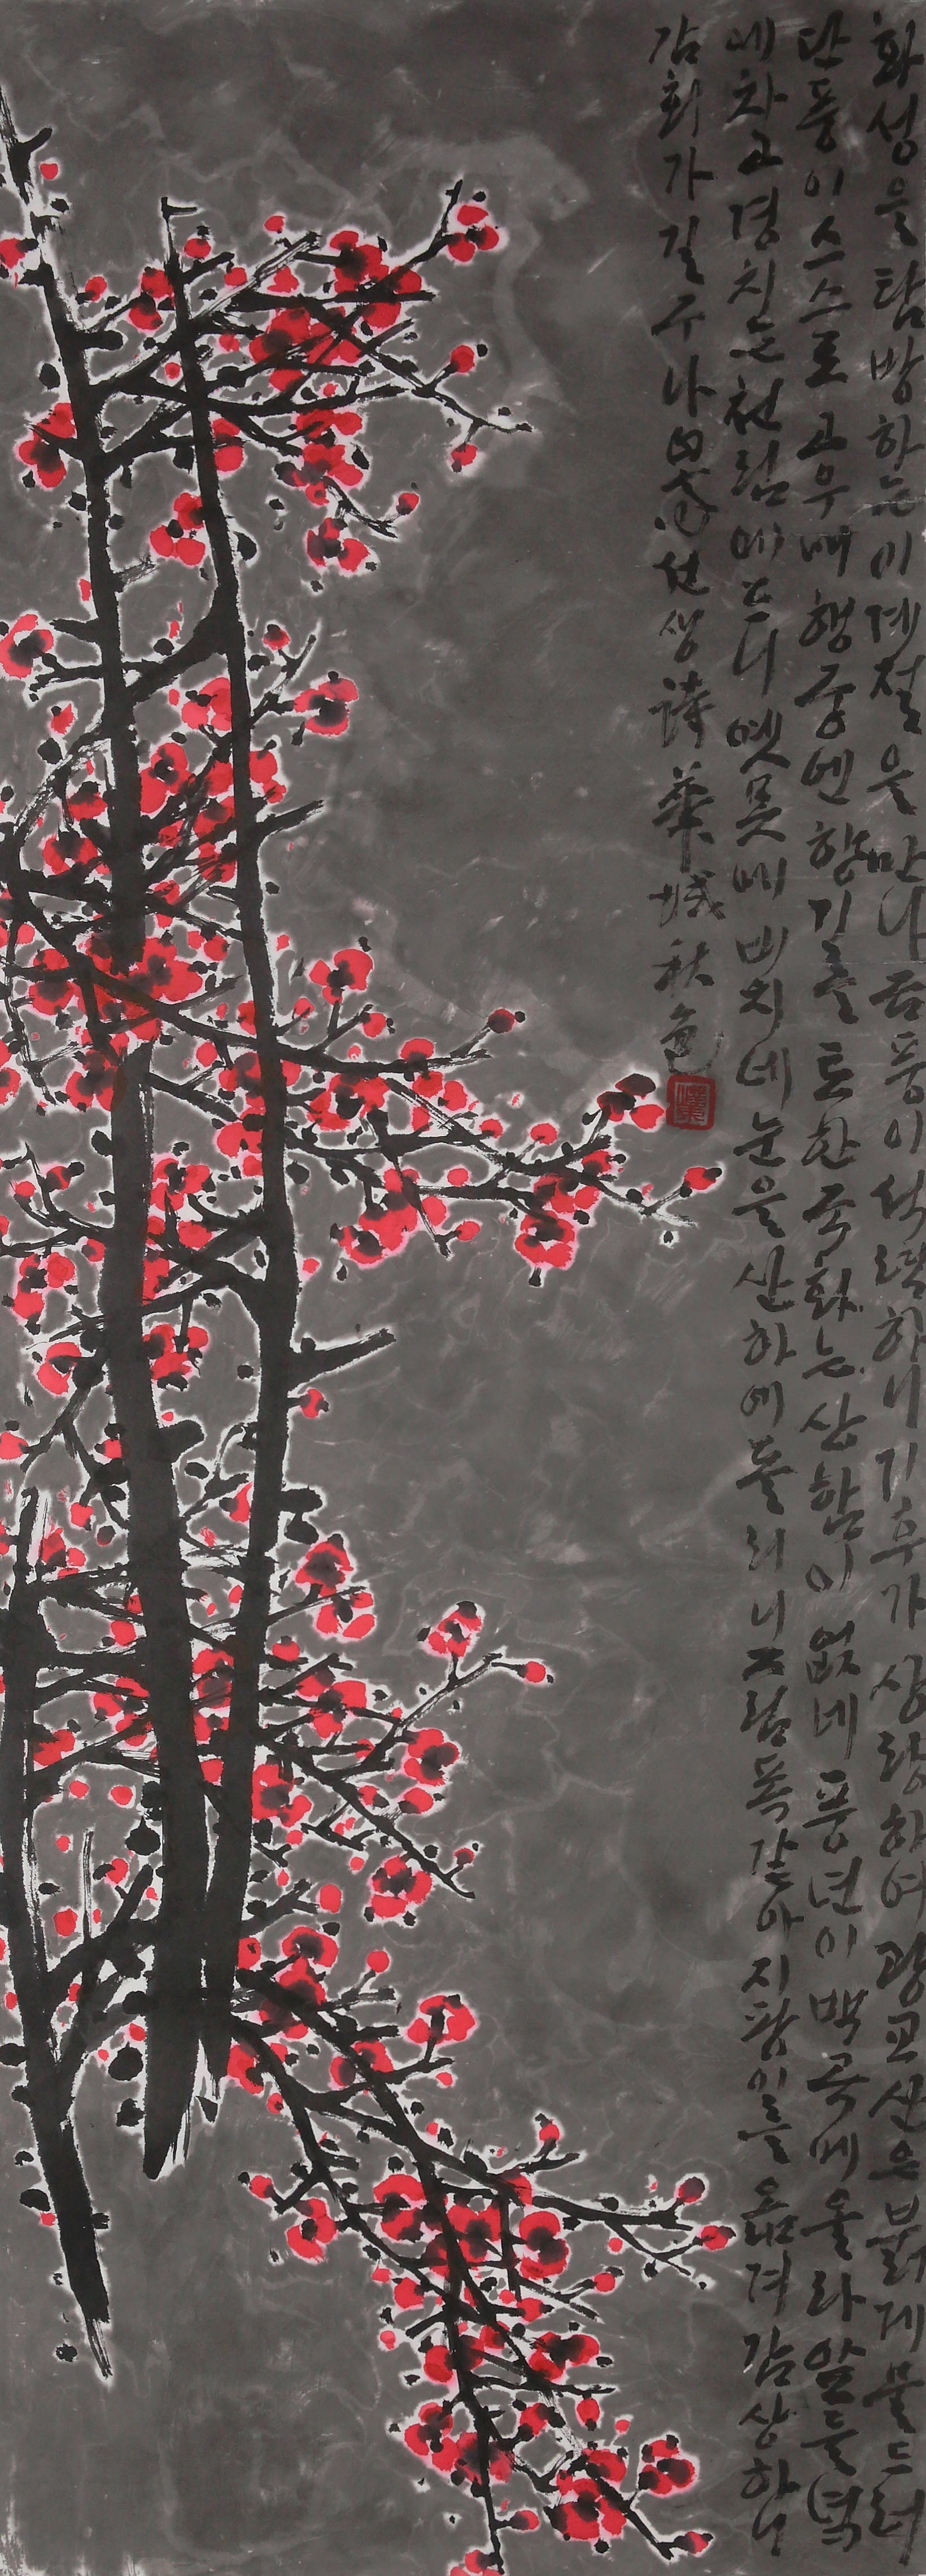 화성을 탐방하는 이 계절을 만나 금풍이 삭막하니 기후가 상량하여 광교산은 붉게 물드러
단풍이 스스로 고우매 행궁엔 향기를 토한 국화는 상함이 없네 풍년이 백곡에 올라 앞들녘
에 차고 경치는 천림에 드니 옛 못에 비치네 눈을 산하에 돌리니 그림 폭 같아 지팡이를 옮겨 감상하니
감회가 길구나 선생 詩 華城秋色